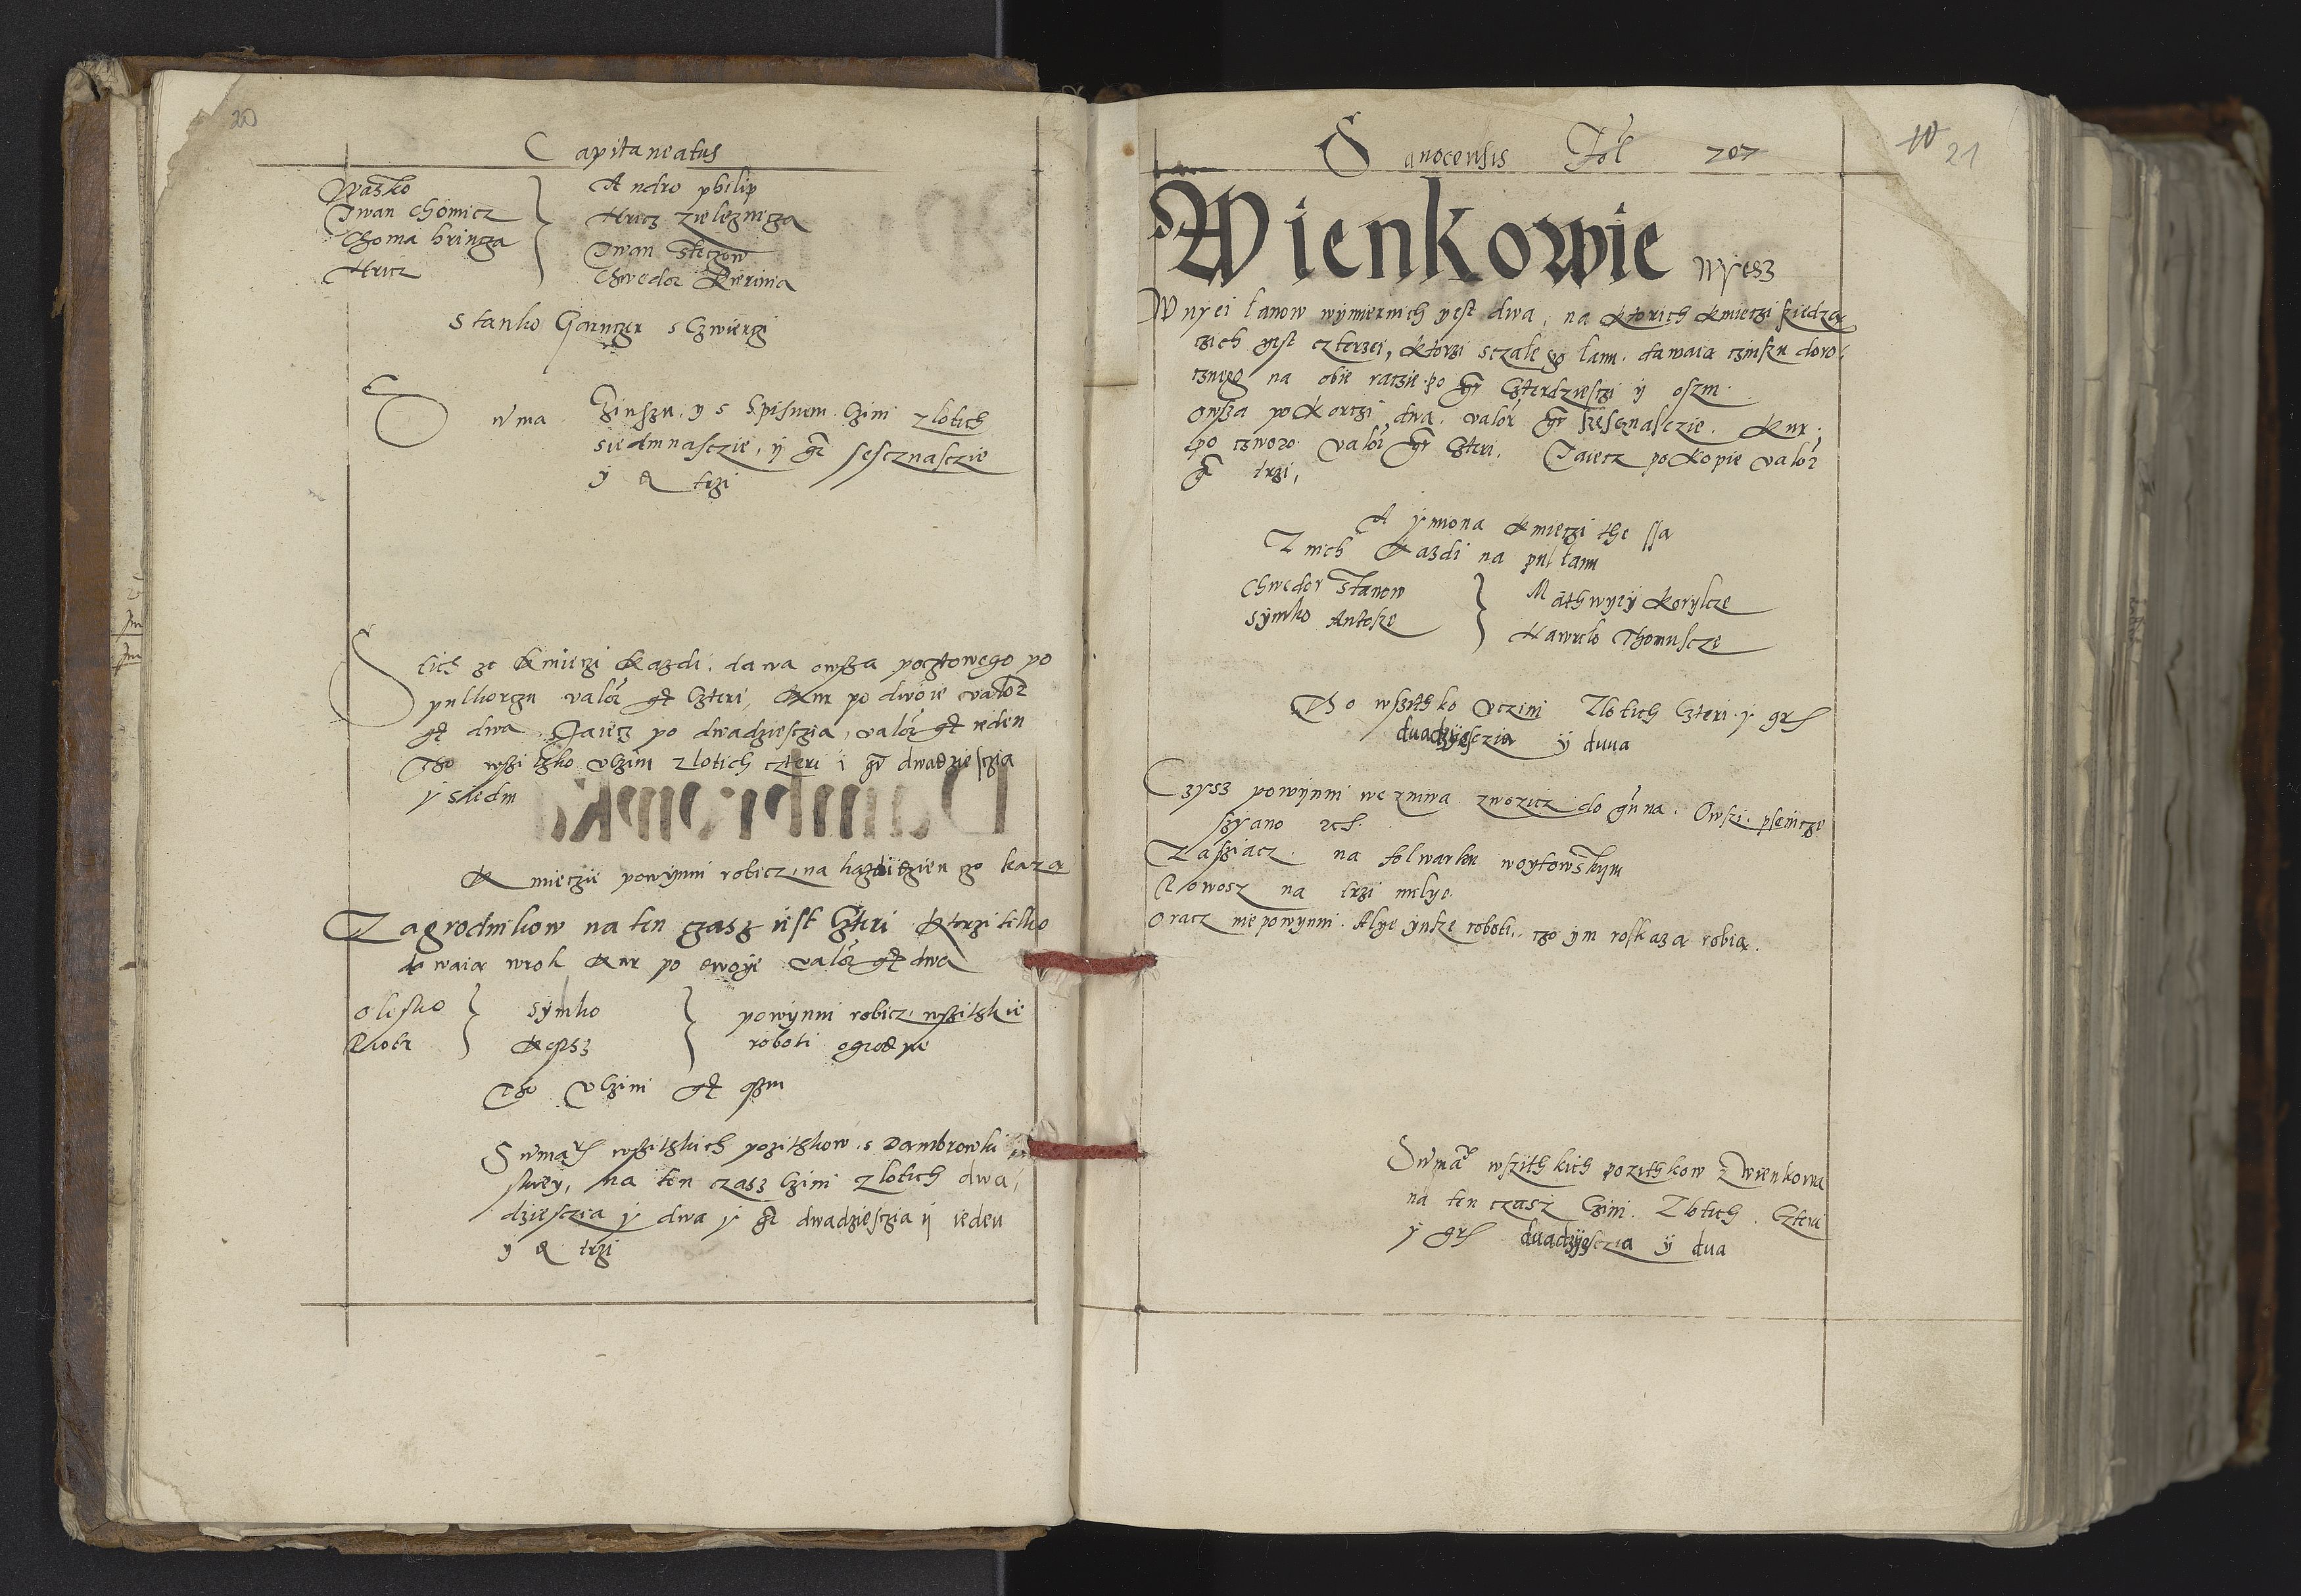 20
Capitaneatus
Waszko
Iwan Chomicz
Choma hrincza
Hricz
Andro philip
Hricz zieleznicza
Iwan Steczow
Chwedor
Stanko Ganczer s Czwierczi
Suma Czinszu, y s Spisnem Czini zlotich
siedmnasczie, y gr sescznasczie
y trzi
tich ze kmieczi kazdi, dawa owsza pocztowego po
pulkorczu valor gr czteri, kur po dwoie valor
gr dwa Jaiecz po dwadziesczia, valor gr ieden
Tho wszitzko uczini zlotich czteri i gr dwadziesczia
y siedm
Kmieczie powynni robicz, na kazdi dzien czo kaza
Zagrodnikow na ten czasz iest Czteri ktorzi telko
dawaia wrok kur po dwoye valor gr dwa
Olesko
symko
powynni robicz, wszitzkie
roboti ogrodne
Tho Uczini gr oszm
Suma wszitzkich pozitzkow s Dambrowki
na ten czasz czini zlotich dwa
dziesczia y dwa y gr dwadziesczia y ieden
y trzi
Sanocensis Fol 707
21
Wienkowie wyesz
W nyei lanow wymiernich yest dwa, na ktorich kmieczi siedzą
czich yest czterzei, ktorzi sczalego lanu. dawaia czinszu doro
cznego na obie raczie po gr Czterdziesczi y oszm
Owsza po korczi dwa valor gr szescznasczie. Kur
po czworo valor gr Czteri. Jaiecz po kopie valor
gr trzi,
A ymiona kmieczi the ssa
Z nich kazdi na pul lanu
Chwedor Stanow
Symko Antosze
Mathwyiy korylcze
Hawrilo Thomuscze
Tho wszithko Uczini Zlotich Czteri y grs
duadzyesczia y duua
Czysz powynni we zniwa zwozicz do guna. Owsi. psenicze
syano etc.
Zasziacz na folwarku woytowskym
Powosz na trzi milye
Oracz nie powynni. Alye ynsze roboti, czo ym roskaza robia.
Suma wszithkich pozithkow z Wienkowa
na ten czasz Czini. Zlotich. Czteri
y grs duadzyesczia y dua